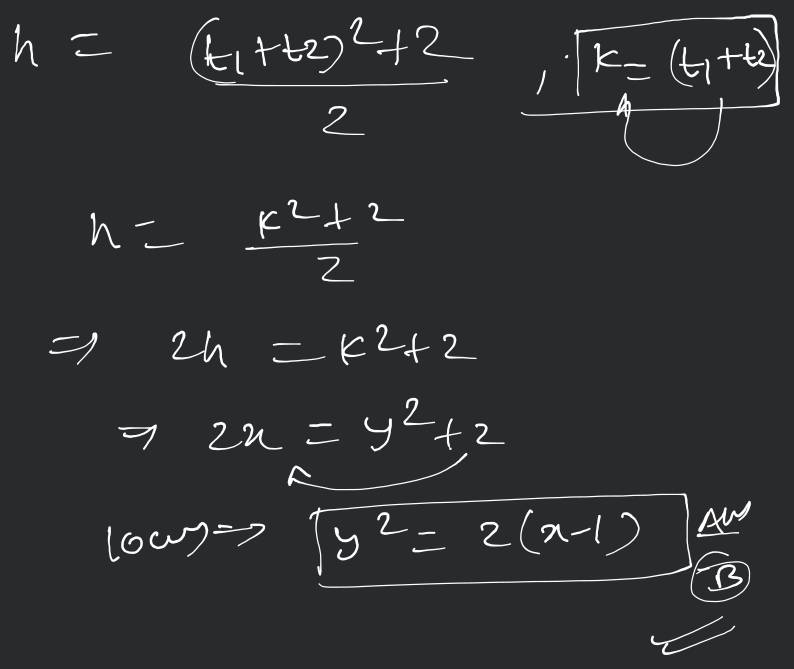 h = ((t₁+t₂)²+2)/2 , K = (t₁+t₂)
h = (K²+2)/2
⇒ 2h = K²+2
⇒ 2x = y²+2
locus ⇒ y² = 2(x-1) Ans
B